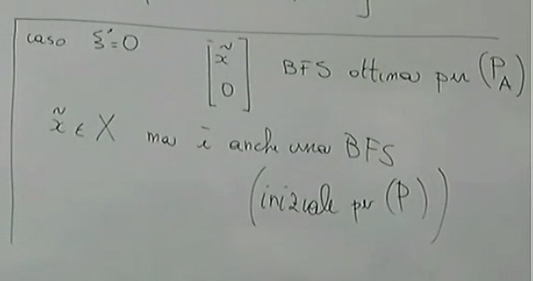 caso ξ*=0 [x̃ 0] BFS ottima per (P_A)
x̃ ∈ X ma è anche una BFS
(iniziale per (P))